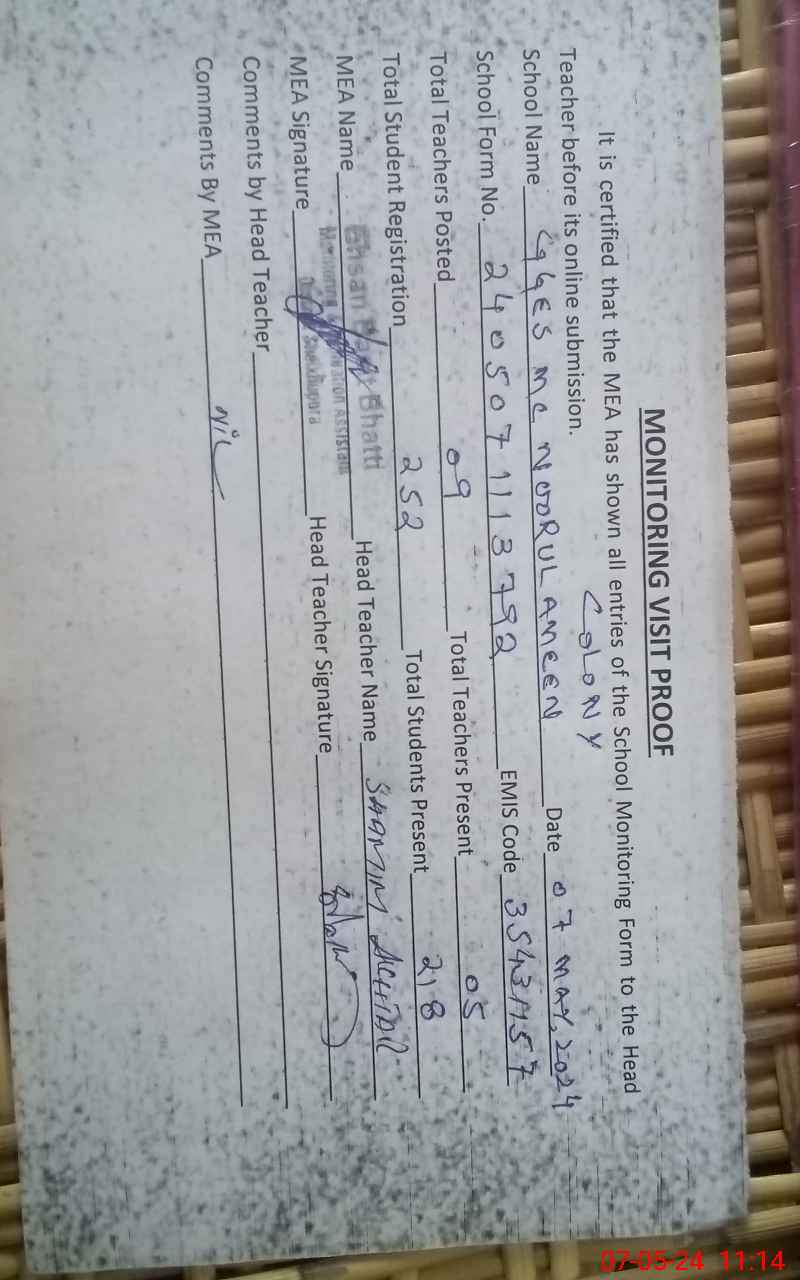 MONITORING VISIT PROOF
It is certified that the MEA has shown all entries of the School Monitoring Form to the Head
Teacher before its online submission.
COLONY
School Name GGES MC NOORUL AMEEN Date 07 MAY, 2024
School Form No. 2405071113792 EMIS Code 35431157
Total Teachers Posted 09 Total Teachers Present 05
Total Student Registration 252 Total Students Present 218
MEA Name Ehsan Bhatti Head Teacher Name SHAMIM AKHTAR
Monitoring Assistant
MEA Signature Sheikhupura Head Teacher Signature
Comments by Head Teacher
Comments By MEA NiL
07-05-24 11:14